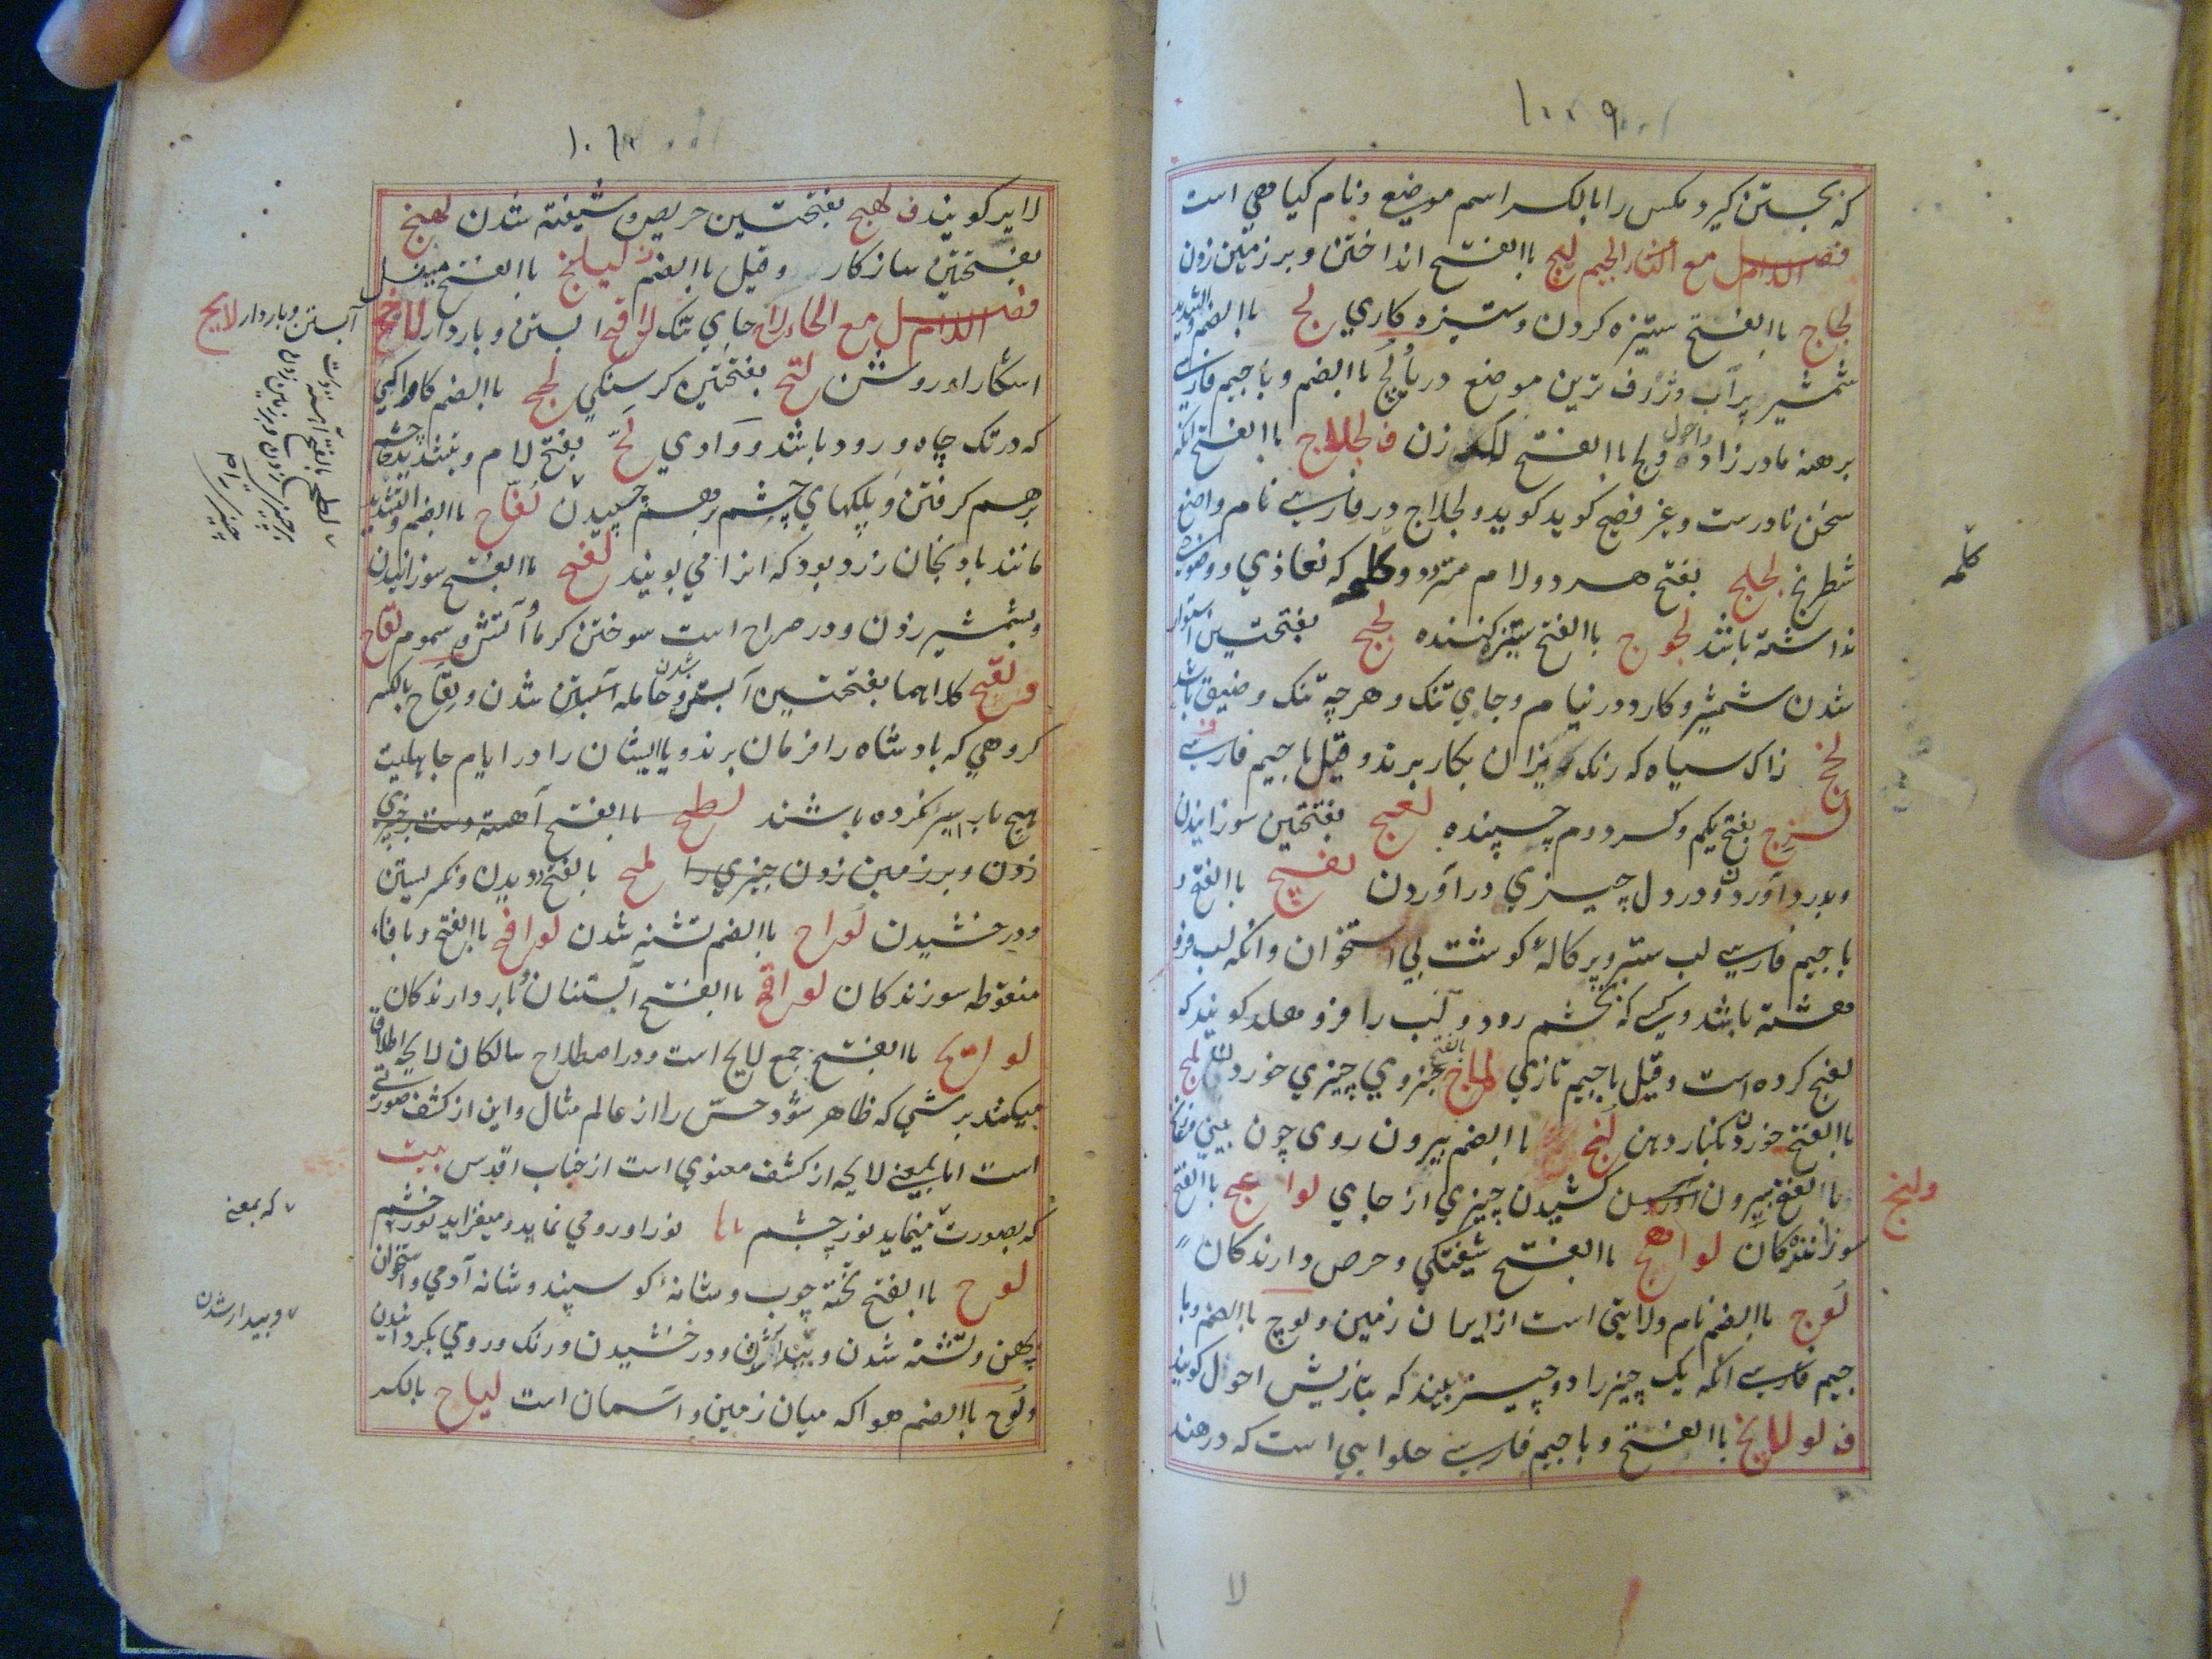 ۱۰۰۹
که بجستن گیرد مکس را با بالکسر اسم موضع و نام کیاهی است
فصل اللام مع الجیم لبج باالفتح انداختن و بر زمین زدن
لجاج باالفتح ستیزه کردن و ستیزه کاری لج باالضم والتشدید
شمشیر پر آب و ژرف ترین موضع دریا و لج باالضم و با جیم فارسی
برهنه مادر زاد و لج باالفتح لکد زن ف لجلاج باالفتح انکه
سخن نادرست و غیر فصیح کوید و لجلاج در فارسی نام واضع
شطرنج لجلج بفتح هر دو لام متردد و کلمه که نفاذی و وضوحی
نداشته باشد لجوج باالفتح ستیزه کننده لحج بفتحتین استوار
شدن شمشیر و کارد در نیام و جای تنک و هر چه تنک و ضیق باشد
لخج زاک سیاه که رنک ریزان بکار برند و قیل با جیم فارسی
لزج بفتح یکم و کسر دوم چسپنده لعج بفتحتین سوزانیدن
و بدرد آوردن و در دل چیزی در آوردن لفچ باالفتح و
با جیم فارسی لب ستبر و پرکالهٔ کوشت بی استخوان و انکه لب فرو
هشته باشد و کسی که بخشم رود و لب را فرو هلد کویند که
لفج کرده است و قیل با جیم تازی لماج بالفتح چیزی خوردن لمج
باالفتح خوردن بکنار دهن لنج باالضم بیرون روی چون بینی
ولنج باالفتح بیرون کشیدن چیزی از جای لواعج باالفتح
سوزانندکان لواهج باالفتح شیفتکی و حرص دارندکان
لوج باالضم نام ولایتی است از ایران زمین و لوچ باالضم و با
جیم فارسی انکه یک چیز را دو چیز بیند که بتازیش احول کویند
ف لولانج باالفتح و با جیم فارسی حلوایی است که در هند
کلمه
لا
لابر کویند ف لهج بفتحتین حریص و شیفته شدن لهنج
بفتحتین سازکار و قیل باالضم لیلنج باالفتح نیل
فصل اللام مع الحاء لاح جای تنک لاقح ابستن و باردار لایح
اشکارا و روشن لتح بفتحتین کرسنکی لجح باالضم کاواکی
که در تک چاه و رود باشد و وادی لح بفتح لام و بتشدید حا چشم
برهم کرفتن و پلکهای چشم بر هم چسپیدن لفاح باالضم والتشدید
مانند بادنجان زرد بود که انرا می بویند لفح باالفتح سوزانیدن
و بشمشیر زدن و در صراح است سوختن کرما و آتش و سموم لقاح
و لقح کلاهما بفتحتین آبستن و حامله شدن و لقاح بالکسر
کروهی که بادشاه را فرمان نبرند و یا ایشان را در ایام جاهلیت
هیچ باب اسیر نکرده باشند لطح باالفتح آهسته دست بر چیزی
زدن و بر زمین زدن چیزی را لمح بالفتح دیدن و نکریستن
و درخشیدن لواح باالضم تشنه شدن لوافح باالفتح و بافاء
منقوطه سوزندکان لواقح باالفتح آبستنان و باردارندکان
لوایح باالفتح جمع لایح است و در اصطلاح سالکان لایحه اطلاق
میکنند بر شی که ظاهر شود حس را از عالم مثال و این از کشف صورتی
است اما بمعنی لایحه از کشف معنوی است از جناب اقدس بیت
که بصورت مینماید نور چشم ها نور او رو می نماید و میفزاید نور چشم
لوح باالفتح تخته چوب و شانهٔ کوسپند و شانه آدمی و استخوان
پهن و تشنه شدن و درخشیدن و رنک و روی بکردانیدن
و لوح باالضم هوا که میان زمین و آسمان است لیاح بالکسر
آبستن و باردار لایح
لطح بالفتح آهسته دست
که بمعنی
و بیدار شدن